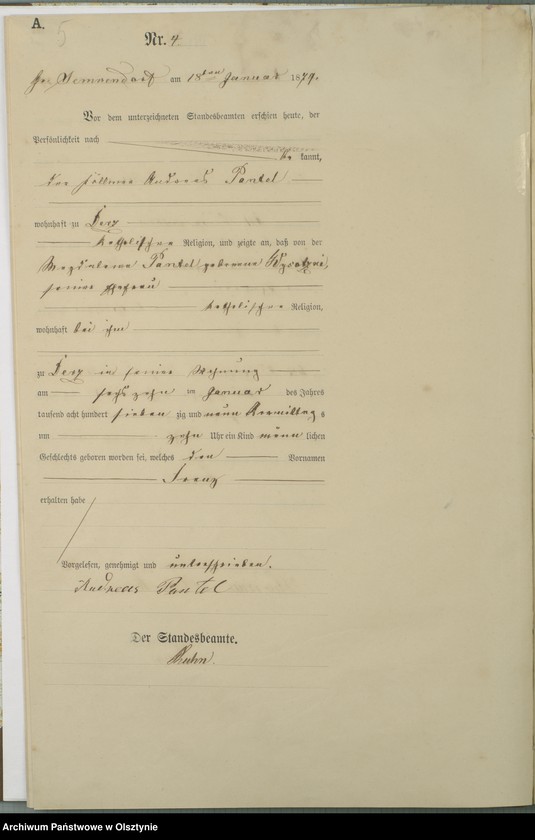 A.
5
Nr. 4
am 18ten Januar 1879.
Vor dem unterzeichneten Standesbeamten erschien heute, der
Persönlichkeit nach
be kannt,
der Andreas Pantel
wohnhaft zu Derz
katholischer Religion, und zeigte an, daß von der
Magdalena Pantel geborene
seiner Ehefrau
katholischer Religion,
wohnhaft bei ihm
zu Derz in seiner Wohnung
am sechszehn ten Januar des Jahres
tausend acht hundert sieben zig und neun Vormittag s
um zehn Uhr ein Kind männ lichen
Geschlechts geboren worden sei, welches den Vornamen
Franz
erhalten habe
Vorgelesen, genehmigt und unterschrieben.
Andreas Pantel
Der Standesbeamte.
Kuhn.
Archiwum Państwowe w Olsztynie